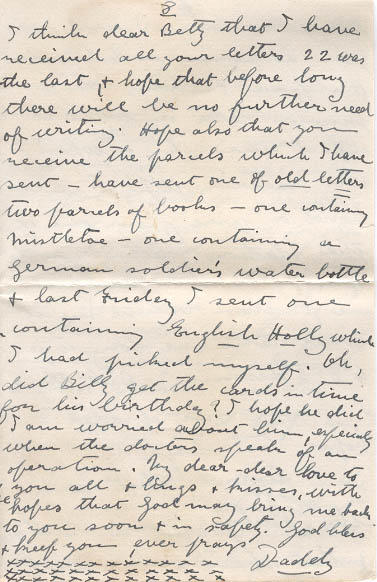 8
I think dear Betty that I have
received all your letters 22 was
the last, & hope that before long
there will be no further need
of writing. Hope also that you
receive the parcels which I have
sent – have sent one of old letters
two parcels of books – one containing
mistletoe – one containing a
German soldier's water bottle
& last Friday I sent one
containing English Holly which
I had picked myself. Oh,
did Billy get the cards in time
for his birthday? I hope he did
I am worried about him, especially
when the doctors speak of an
operation. My dear-dear love to
you all & hugs & kisses, with
hopes that God may bring me back
to you soon & in safety. God bless
& keep you, ever prays
Daddy
x x x x x x x x x x
x x x x x x x x x x
x x x x x x x x x x